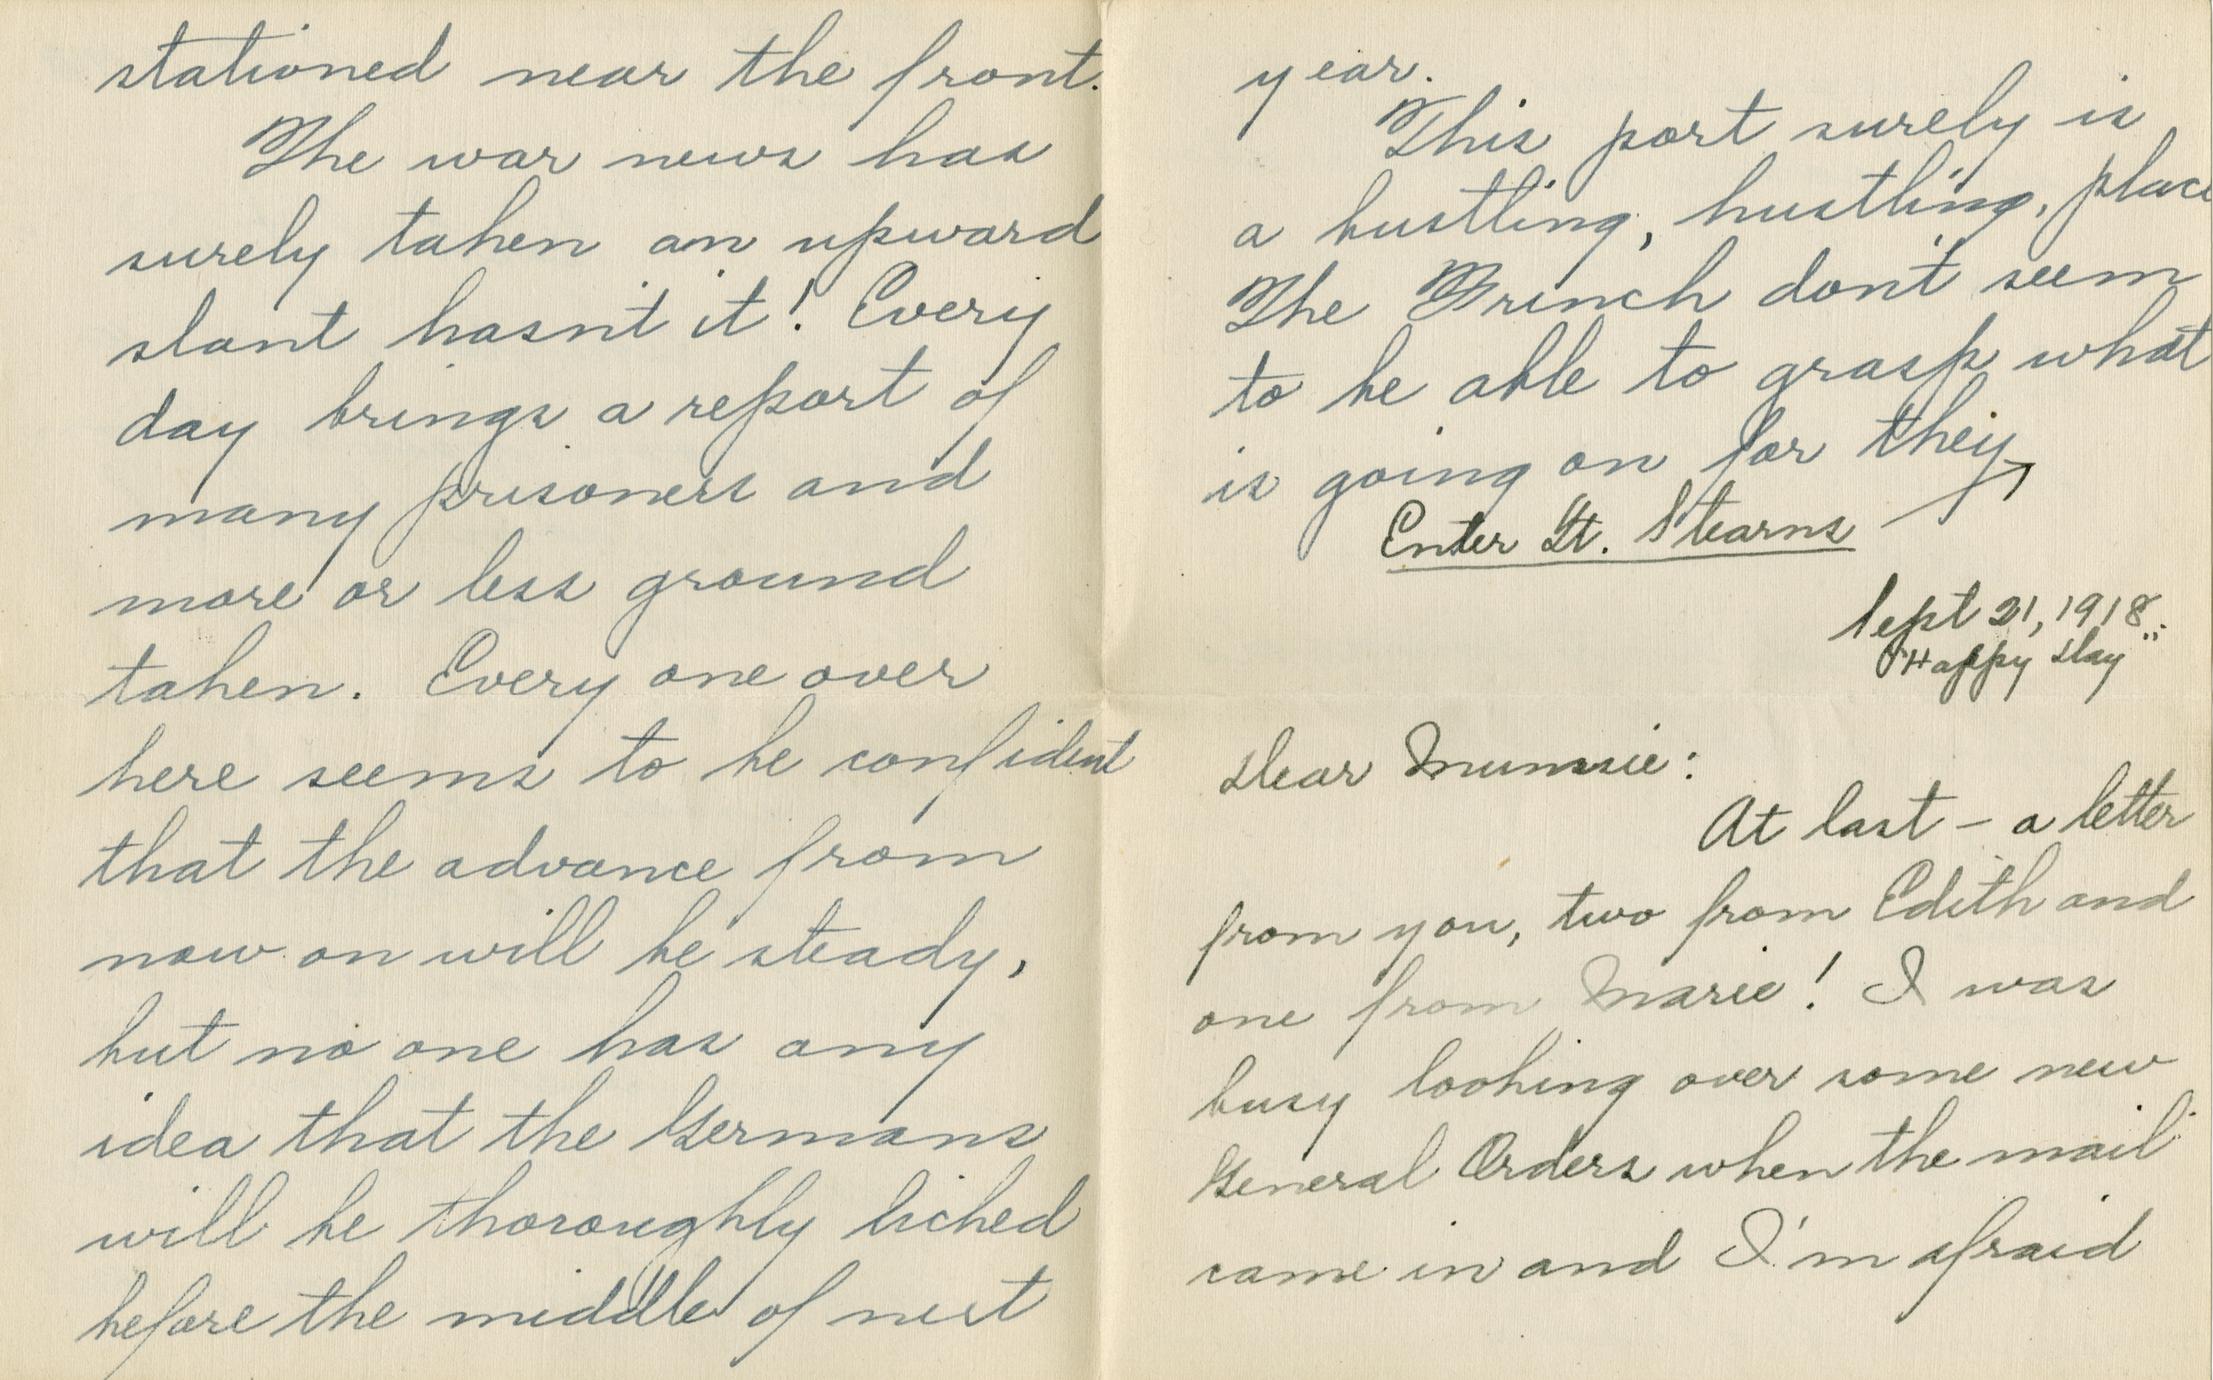 stationed near the front.
The war news has
surely taken an upward
slant hasn't it! Every
day brings a report of
many prisoners and
more or less ground
taken. Every one over
here seems to be confident
that the advance from
now on will be steady,
but no one has any
idea that the Germans
will be thoroughly licked
before the middle of next
year.
This port surely is
a bustling, hustling, place
The French don't seem
to be able to grasp what
is going on for they
Enter Lt. Stearns
Sept 21, 1918
"Happy Day"
Dear Mumsie:
At last – a letter
from you, two from Edith and
one from Marie! I was
busy looking over some new
General Orders when the mail
came in and I'm afraid